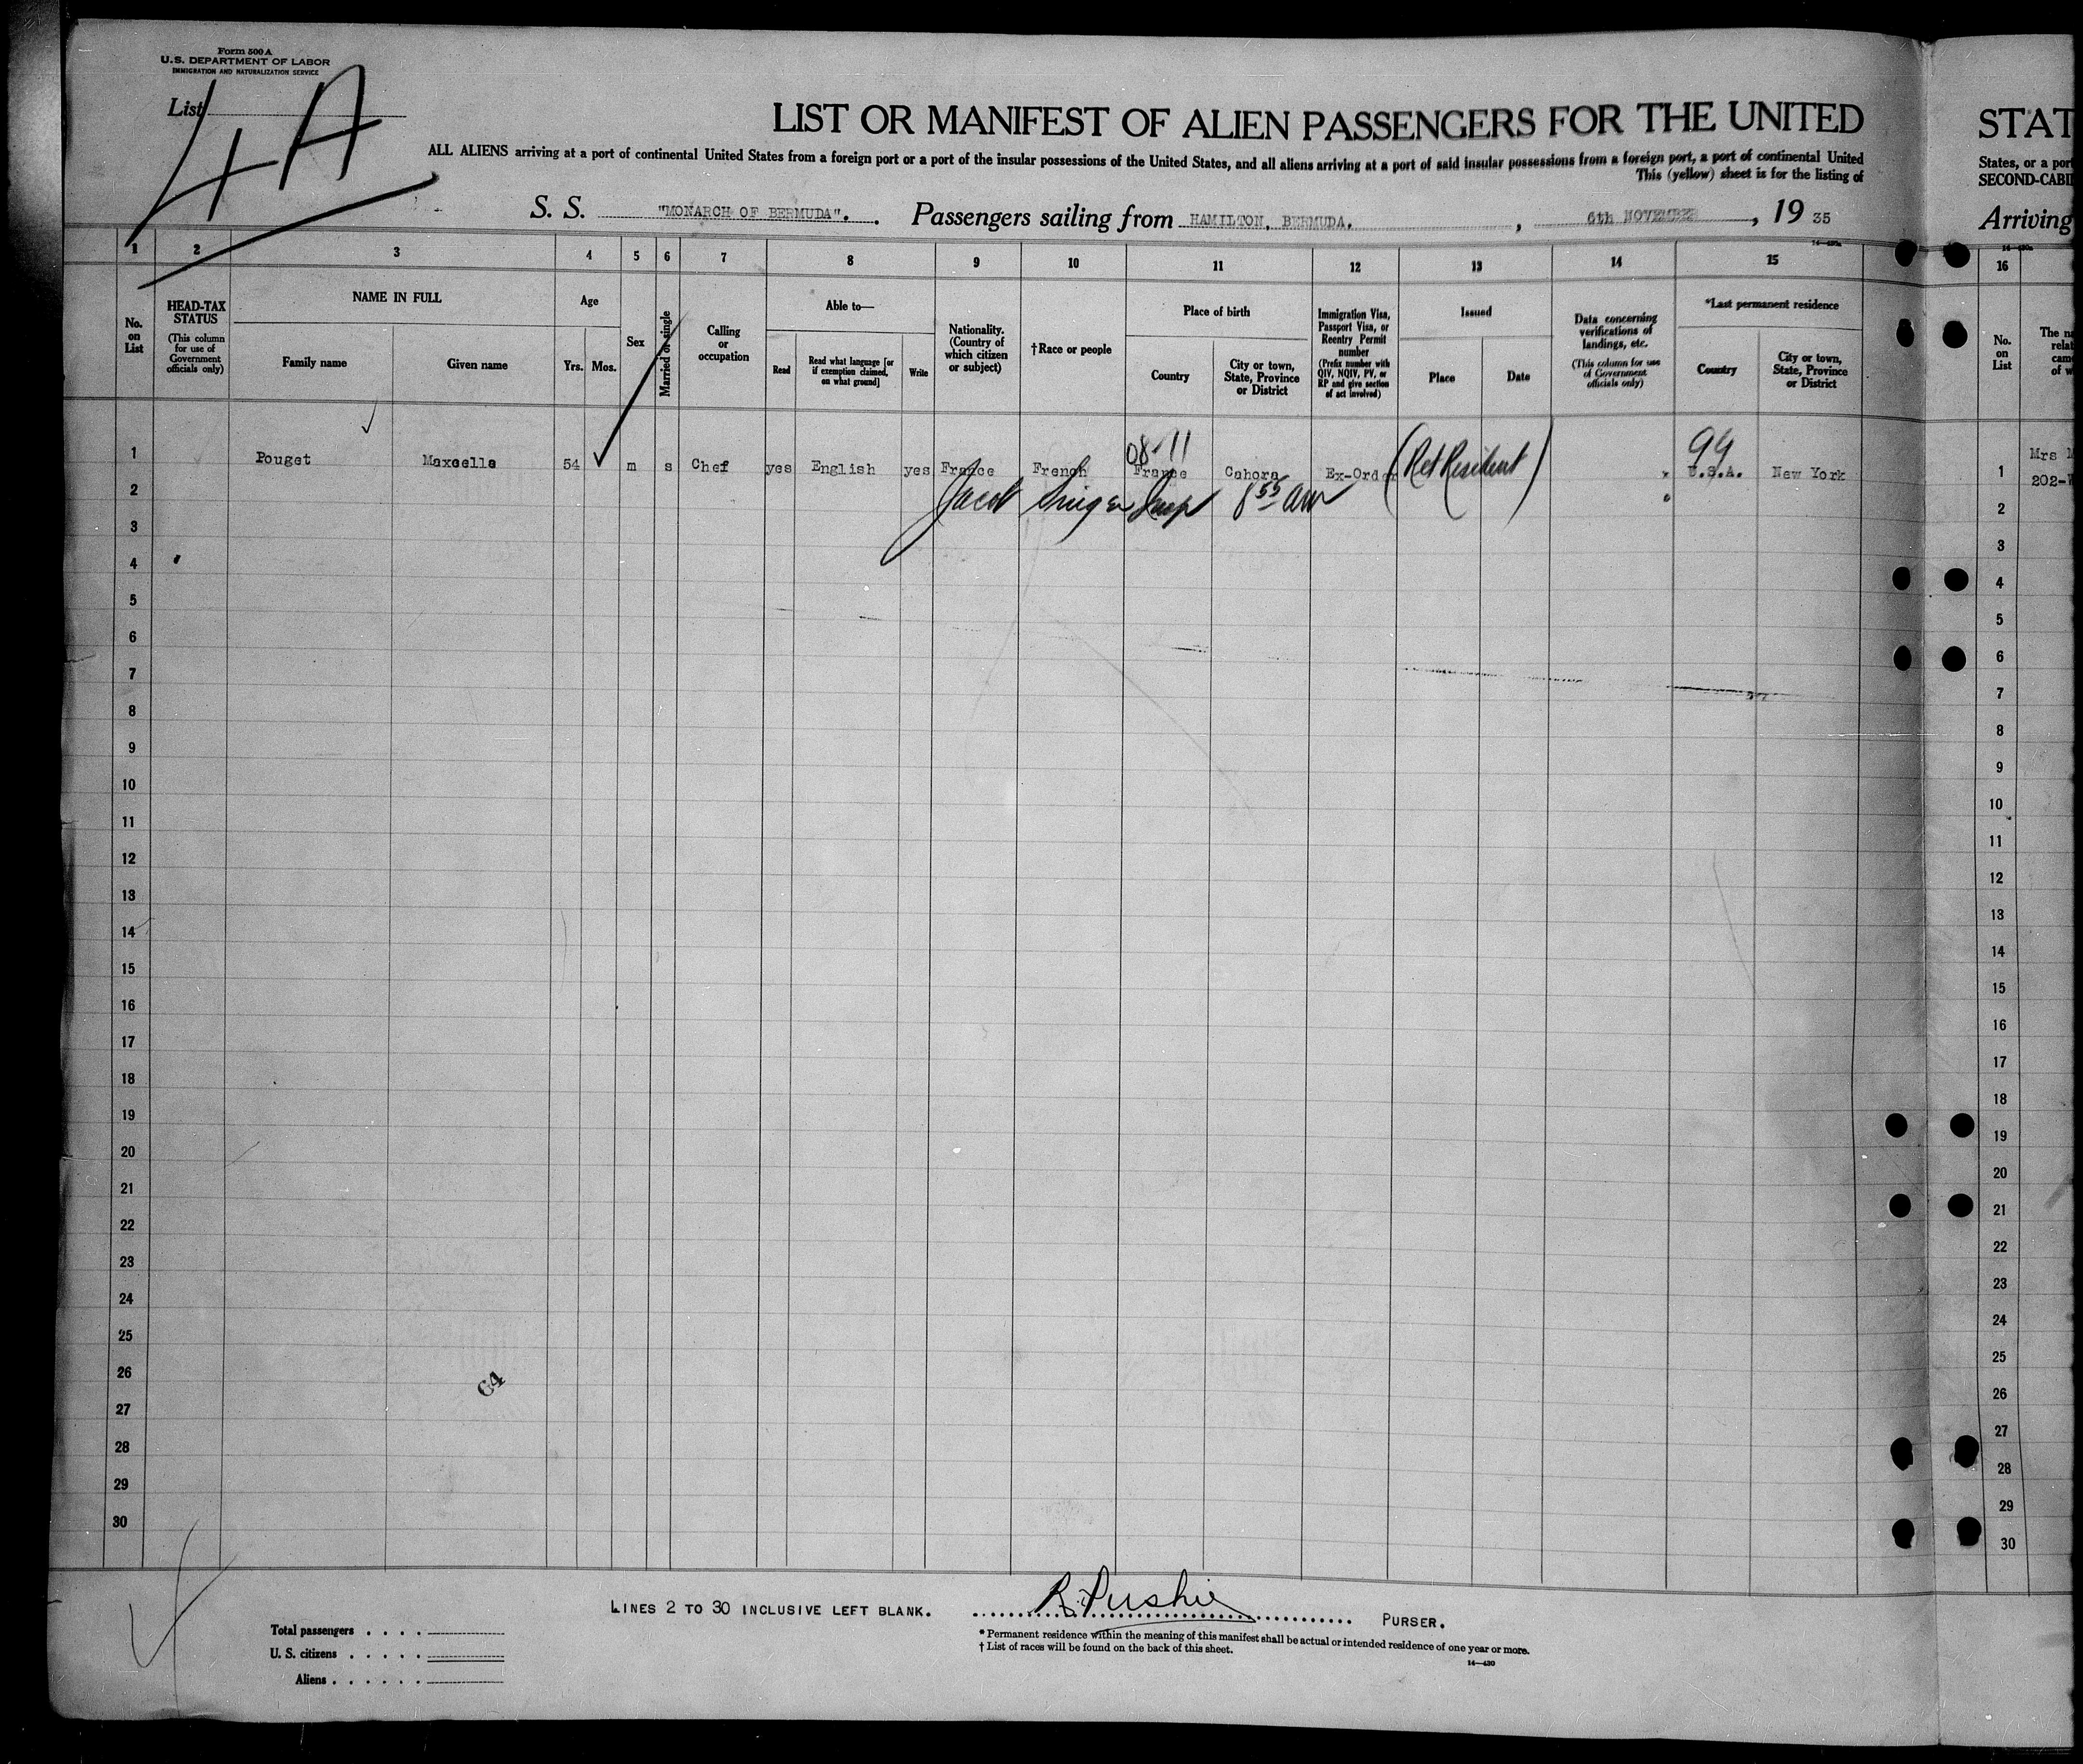 Form 500 A
U.S. DEPARTMENT OF LABOR
IMMIGRATION AND NATURALIZATION SERVICE
List
4A
LIST OR MANIFEST OF ALIEN PASSENGERS FOR THE UNITED
ALL ALIENS arriving at a port of continental United States from a foreign port or a port of the insular possessions of the United States, and all aliens arriving at a port of said insular possessions from a foreign port, a port of continental United
This (yellow) sheet is for the listing of
S. S. "MONARCH OF BERMUDA". Passengers sailing from HAMILTON, BERMUDA. , 6th NOVEMBER , 19 35
STAT
States, or a port
SECOND-CABI
Arriving
1 2 3 4 5 6 7 8 9 10 11 12 13 14 15 16
No. on List
HEAD-TAX STATUS (This column for use of Government officials only)
NAME IN FULL
Family name
Given name
Age
Yrs. Mos.
Sex
Married or single
Calling or occupation
Able to—
Read
Read what language [or if exemption claimed, on what ground]
Write
Nationality. (Country of which citizen or subject)
†Race or people
Place of birth
Country
City or town, State, Province or District
Immigration Visa, Passport Visa, or Reentry Permit number (Prefix number with QIV, NQIV, PV, or RP and give section of act involved)
Issued
Place
Date
Data concerning verifications of landings, etc. (This column for use of Government officials only)
*Last permanent residence
Country
City or town, State, Province or District
No. on List
The na
rela
cam
of w
08-11
99
1 Pouget Maxcelle 54 m s Chef yes English yes France French France Cahora Ex-Order (Ret Resident) U.S.A. New York 1
Mrs M
202-
Jacob Singer Insp 8 55 am
2 2
3 3
4 4
5 5
6 6
7 7
8 8
9 9
10 10
11 11
12 12
13 13
14 14
15 15
16 16
17 17
18 18
19 19
20 20
21 21
22 22
23 23
24 24
25 25
26 26
27 27
28 28
29 29
30 30
64
LINES 2 TO 30 INCLUSIVE LEFT BLANK. R. Pushie PURSER.
Total passengers
U. S. citizens
Aliens
* Permanent residence within the meaning of this manifest shall be actual or intended residence of one year or more.
† List of races will be found on the back of this sheet.
14—430